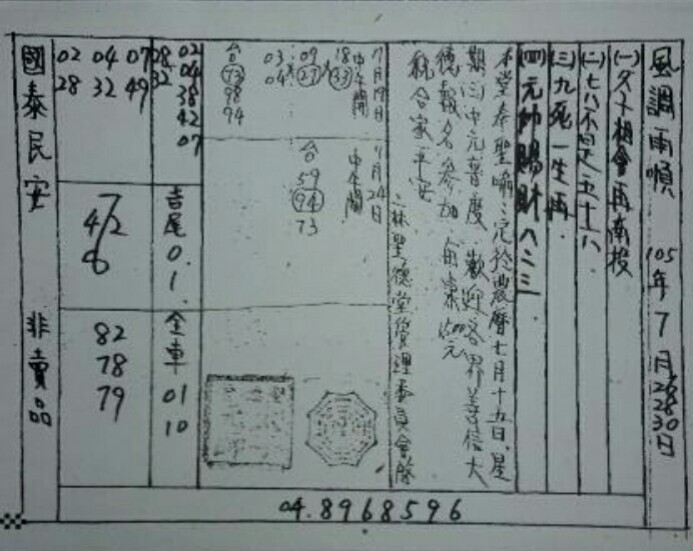 風調雨順 105年7月26 28 30日
(一)夕卜相會再南投
(二)七八不是五十八
(三)九死一生再
(四)元帥賜財八三三
本堂奉聖喻:定於農曆七月十五日,星
期三中元普度,歡迎各界善信大
德報名參加,每桌 元
祝合家平安
二林聖德堂管理委員會啓
7月19日
中午開
18 (33)
09 (27)
03
04
合
(73)
98
94
7月24日
中午開
合
59
(94)
73
02
04
38
42
07
08
32
07 49
04 32
02 28
吉尾0.1.
7
4/2
6
全車 01 10
82
78
79
國泰民安 非賣品
04.8968596